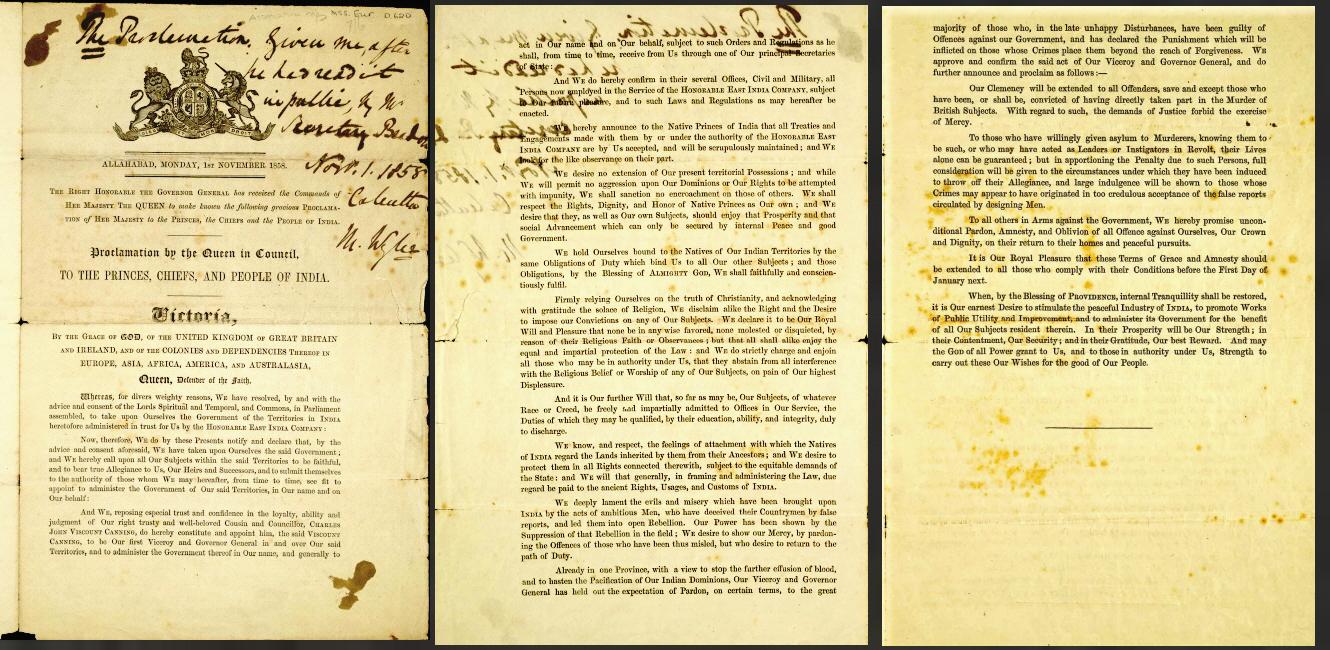 Mss. Eur D620
The Proclamation. Given me after
he has read it
in public, by Mr
Secretary Beadon
Novr. 1. 1858
Calcutta
ALLAHABAD, MONDAY, 1st NOVEMBER 1858.
THE RIGHT HONORABLE THE GOVERNOR GENERAL has received the Commands of
HER MAJESTY THE QUEEN to make known the following gracious PROCLAMA-
TION OF HER MAJESTY to the PRINCES, the CHIEFS and the PEOPLE OF INDIA.
Proclamation by the Queen in Council,
TO THE PRINCES, CHIEFS, AND PEOPLE OF INDIA.
Victoria,
BY THE GRACE OF GOD, OF THE UNITED KINGDOM OF GREAT BRITAIN
AND IRELAND, AND OF THE COLONIES AND DEPENDENCIES THEREOF IN
EUROPE, ASIA, AFRICA, AMERICA, AND AUSTRALASIA,
Queen, Defender of the Faith.
Whereas, for divers weighty reasons, We have resolved, by and with the
advice and consent of the Lords Spiritual and Temporal, and Commons, in Parliament
assembled, to take upon Ourselves the Government of the Territories in INDIA
heretofore administered in trust for Us by the HONORABLE EAST INDIA COMPANY:
Now, therefore, We do by these Presents notify and declare that, by the
advice and consent aforesaid, WE have taken upon Ourselves the said Government;
and WE hereby call upon all Our Subjects within the said Territories to be faithful,
and to bear true Allegiance to Us, Our Heirs and Successors, and to submit themselves
to the authority of those whom WE may hereafter, from time to time, see fit to
appoint to administer the Government of Our said Territories, in Our name and on
Our behalf:
And WE, reposing especial trust and confidence in the loyalty, ability and
judgment of Our right trusty and well-beloved Cousin and Councillor, CHARLES
JOHN VISCOUNT CANNING, do hereby constitute and appoint him, the said VISCOUNT
CANNING, to be Our first Viceroy and Governor General in and over Our said
Territories, and to administer the Government thereof in Our name, and generally to
act in Our name and on Our behalf, subject to such Orders and Regulations as he
shall, from time to time, receive from Us through one of Our principal Secretaries
of State:
And WE do hereby confirm in their several Offices, Civil and Military, all
Persons now employed in the Service of the HONORABLE EAST INDIA COMPANY, subject
to Our future pleasure, and to such Laws and Regulations as may hereafter be
enacted.
We hereby announce to the Native Princes of India that all Treaties and
Engagements made with them by or under the authority of the HONORABLE EAST
INDIA COMPANY are by Us accepted, and will be scrupulously maintained; and WE
look for the like observance on their part.
We desire no extension of Our present territorial Possessions; and while
WE will permit no aggression upon Our Dominions or Our Rights to be attempted
with impunity, WE shall sanction no encroachment on those of others. WE shall
respect the Rights, Dignity, and Honor of Native Princes as Our own; and WE
desire that they, as well as Our own Subjects, should enjoy that Prosperity and that
social Advancement which can only be secured by internal Peace and good
Government.
WE hold Ourselves bound to the Natives of Our Indian Territories by the
same Obligations of Duty which bind Us to all Our other Subjects; and those
Obligations, by the Blessing of ALMIGHTY GOD, WE shall faithfully and conscien-
tiously fulfil.
Firmly relying Ourselves on the truth of Christianity, and acknowledging
with gratitude the solace of Religion, WE disclaim alike the Right and the Desire
to impose our Convictions on any of Our Subjects. WE declare it to be Our Royal
Will and Pleasure that none be in any wise favored, none molested or disquieted, by
reason of their Religious Faith or Observances; but that all shall alike enjoy the
equal and impartial protection of the Law: and WE do strictly charge and enjoin
all those who may be in authority under Us, that they abstain from all interference
with the Religious Belief or Worship of any of Our Subjects, on pain of Our highest
Displeasure.
And it is Our further Will that, so far as may be, Our Subjects, of whatever
Race or Creed, be freely and impartially admitted to Offices in Our Service, the
Duties of which they may be qualified, by their education, ability, and integrity, duly
to discharge.
WE know, and respect, the feelings of attachment with which the Natives
of INDIA regard the Lands inherited by them from their Ancestors; and WE desire to
protect them in all Rights connected therewith, subject to the equitable demands of
the State: and WE will that generally, in framing and administering the Law, due
regard be paid to the ancient Rights, Usages, and Customs of INDIA.
WE deeply lament the evils and misery which have been brought upon
INDIA by the acts of ambitious Men, who have deceived their Countrymen by false
reports, and led them into open Rebellion. Our Power has been shown by the
Suppression of that Rebellion in the field; WE desire to show our Mercy, by pardon-
ing the Offences of those who have been thus misled, but who desire to return to the
path of Duty.
Already in one Province, with a view to stop the further effusion of blood,
and to hasten the Pacification of Our Indian Dominions, Our Viceroy and Governor
General has held out the expectation of Pardon, on certain terms, to the great
majority of those who, in the late unhappy Disturbances, have been guilty of
Offences against our Government, and has declared the Punishment which will be
inflicted on those whose Crimes place them beyond the reach of Forgiveness. WE
approve and confirm the said act of Our Viceroy and Governor General, and do
further announce and proclaim as follows:—
Our Clemency will be extended to all Offenders, save and except those who
have been, or shall be, convicted of having directly taken part in the Murder of
British Subjects. With regard to such, the demands of Justice forbid the exercise
of Mercy.
To those who have willingly given asylum to Murderers, knowing them to
be such, or who may have acted as Leaders or Instigators in Revolt, their Lives
alone can be guaranteed; but in apportioning the Penalty due to such Persons, full
consideration will be given to the circumstances under which they have been induced
to throw off their Allegiance, and large indulgence will be shown to those whose
Crimes may appear to have originated in too credulous acceptance of the false reports
circulated by designing Men.
To all others in Arms against the Government, WE hereby promise uncon-
ditional Pardon, Amnesty, and Oblivion of all Offence against Ourselves, Our Crown
and Dignity, on their return to their homes and peaceful pursuits.
It is Our Royal Pleasure that these Terms of Grace and Amnesty should
be extended to all those who comply with their Conditions before the First Day of
January next.
When, by the Blessing of PROVIDENCE, internal Tranquillity shall be restored,
it is Our earnest Desire to stimulate the peaceful Industry of INDIA, to promote Works
of Public Utility and Improvement, and to administer its Government for the benefit
of all Our Subjects resident therein. In their Prosperity will be Our Strength; in
their Contentment, Our Security; and in their Gratitude, Our best Reward. And may
the GOD of all Power grant to Us, and to those in authority under Us, Strength to
carry out these Our Wishes for the good of Our People.